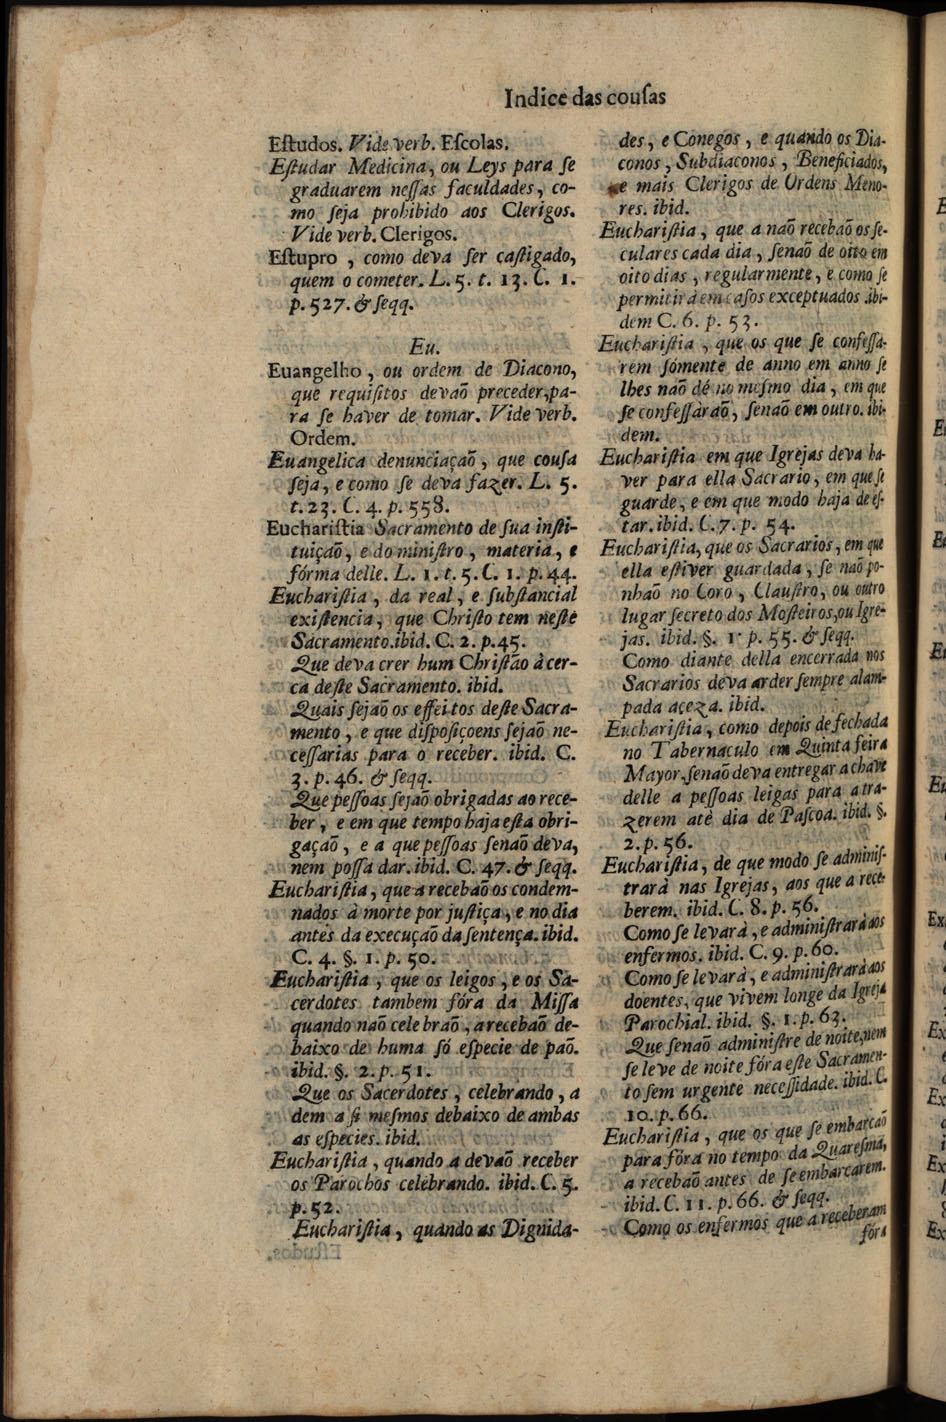 Indice das couſas
Eſtudos. Vide verb. Eſcolas.
Eſtudar Medicina, ou Leys para ſe
graduarem neſſas faculdades, co-
mo ſeja prohibido aos Clerigos.
Vide verb. Clerigos.
Eſtupro, como deva ſer caſtigado,
quem o cometer. L. 5. t. 13. C. 1.
p. 527. & ſeqq.
Eu.
Euangelho, ou ordem de Diacono,
que requiſitos devaõ preceder, pa-
ra ſe haver de tomar. Vide verb.
Ordem.
Euangelica denunciaçaõ, que couſa
ſeja, e como ſe deva fazer. L. 5.
t. 23. C. 4. p. 558.
Euchariſtia Sacramento de ſua inſti-
tuiçaõ, e do miniſtro, materia, e
fórma delle. L. 1. t. 5. C. 1. p. 44.
Euchariſtia, da real, e ſubſtancial
exiſtencia, que Chriſto tem neſte
Sacramento. ibid. C. 2. p. 45.
Que deva crer hum Chriſtão àcer-
ca deſte Sacramento. ibid.
Quais ſejaõ os effeitos deſte Sacra-
mento, e que diſpoſiçoens ſejaõ ne-
ceſſarias para o receber. ibid. C.
3. p. 46. & ſeqq.
Que peſſoas ſejaõ obrigadas ao rece-
ber, e em que tempo haja eſta obri-
gaçaõ, e a que peſſoas ſenaõ deva,
nem poſſa dar. ibid. C. 47. & ſeqq.
Euchariſtia, que a recebaõ os condem-
nados à morte por juſtiça, e no dia
antes da execuçaõ da ſentença. ibid.
C. 4. §. 1. p. 50.
Euchariſtia, que os leigos, e os Sa-
cerdotes tambem fóra da Miſſa
quando naõ celebraõ, a recebaõ de-
baixo de huma ſó eſpecie de paõ.
ibid. §. 2. p. 51.
Que os Sacerdotes, celebrando, a
dem a ſi meſmos debaixo de ambas
as eſpecies. ibid.
Euchariſtia, quando a devaõ receber
os Parochos celebrando. ibid. C. 5.
p. 52.
Euchariſtia, quando as Dignida-
des, e Conegos, e quando os Dia-
conos, Subdiaconos, Beneficiados,
e mais Clerigos de Ordens Meno-
res. ibid.
Euchariſtia, que a naõ recebaõ os ſe-
culares cada dia, ſenaõ de oito em
oito dias, regularmente, e como ſe
permitirá em caſos exceptuados. ibi-
dem C. 6. p. 53.
Euchariſtia, que os que ſe confeſſa-
rem ſómente de anno em anno ſe
lhes naõ dé no meſmo dia, em que
ſe confeſſàraõ, ſenaõ em outro. ibi-
dem.
Euchariſtia em que Igrejas deva ha-
ver para ella Sacrario, em que ſe
guarde, e em que modo haja de eſ-
tar. ibid. C. 7. p. 54.
Euchariſtia, que os Sacrarios, em que
ella eſtiver guardada, ſe naõ po-
nhaõ no Coro, Clauſtro, ou outro
lugar ſecreto dos Moſteiros, ou Igre-
jas. ibid. §. 1. p. 55. & ſeqq.
Como diante della encerrada nos
Sacrarios deva arder ſempre alam-
pada aceza. ibid.
Euchariſtia, como depois de fechada
no Tabernaculo em Quinta feira
Mayor, ſenaõ deva entregar a chave
delle a peſſoas leigas para a tra-
zerem atè dia de Paſcoa. ibid. §.
2. p. 56.
Euchariſtia, de que modo ſe adminiſ-
trarà nas Igrejas, aos que a rece-
berem. ibid. C. 8. p. 56.
Como ſe levarà, e adminiſtrarà aos
enfermos. ibid. C. 9. p. 60.
Como ſe levarà, e adminiſtrarà aos
doentes, que vivem longe da Igreja
Parochial. ibid. §. 1. p. 63.
Que ſenaõ adminiſtre de noite, nem
ſe leve de noite fóra eſte Sacramen-
to ſem urgente neceſſidade. ibid. C.
10. p. 66.
Euchariſtia, que os que ſe embarcaõ
para fóra no tempo da Quareſma,
a recebaõ antes de ſe embarcarem.
ibid. C. 11. p. 66. & ſeqq.
Como os enfermos que a receberam
fóra